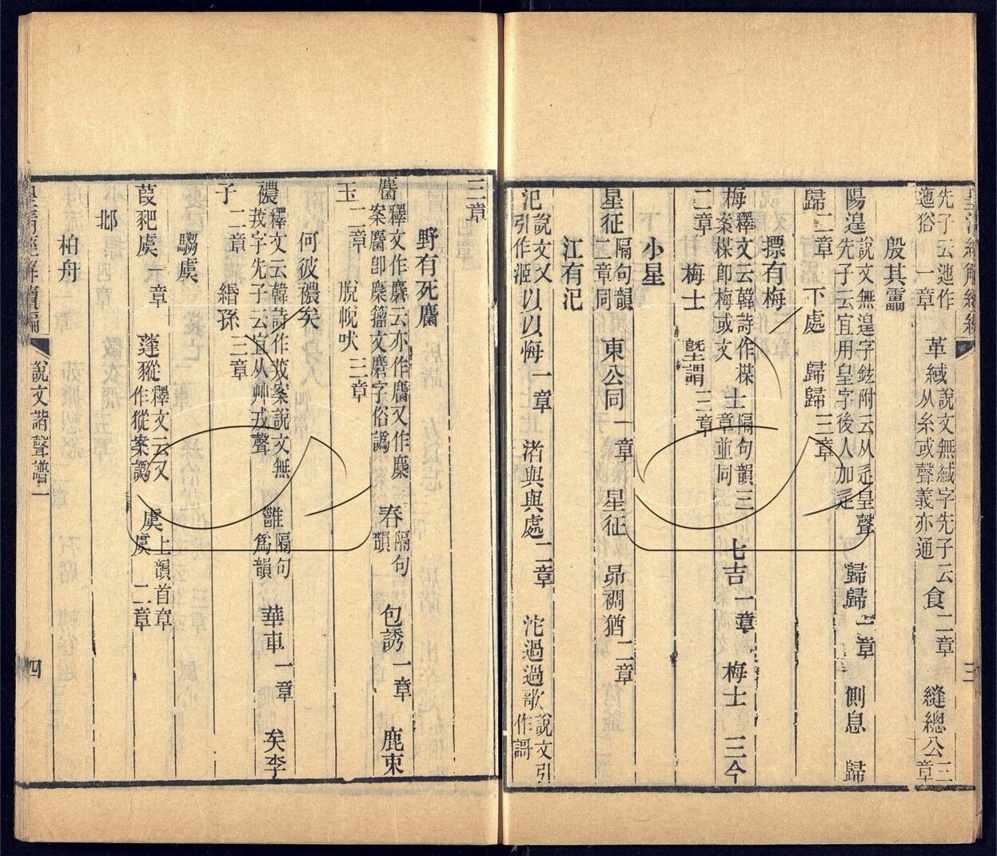 先子云迤作
迤俗 一章 革緎說文無緎字先子云
从糸或聲義亦通 食二章 縫總公三章
殷其靁
陽遑說文無遑字鉉附云从辵皇聲
先子云宜用皇字後人加辵 歸歸一章 側息 歸
歸二章 下處 歸歸三章
摽有梅
梅釋文云韓詩作楳
案楳即梅或文 士隔句韻三
章並同 七吉一章 梅士 三今
二章 梅士 墍謂三章
小星
星征隔句韻
二章同 東公同一章 星征 昴裯猶二章
江有汜
汜說文又
引作洍 以以悔一章 渚與與處二章 沱過過歌說文引
作謌
三章
野有死麕
麕釋文作麏云亦作麕又作麇
案麕卽麇籀文麏字俗譌 春隔句
韻 包誘一章 鹿束
玉二章 脫帨吠三章
何彼禯矣
禯釋文云韓詩作茙案說文無
茙字先子云宜从艸戎聲 雝隔句
爲韻 華車一章 矣李
子二章 緡孫三章
騶虞
葭豝虞一章 蓬豵釋文云又
作㹐案譌 虞上韻首章
虞 二章
邶
柏舟
皇淸經解續編 說文諧聲譜一 四